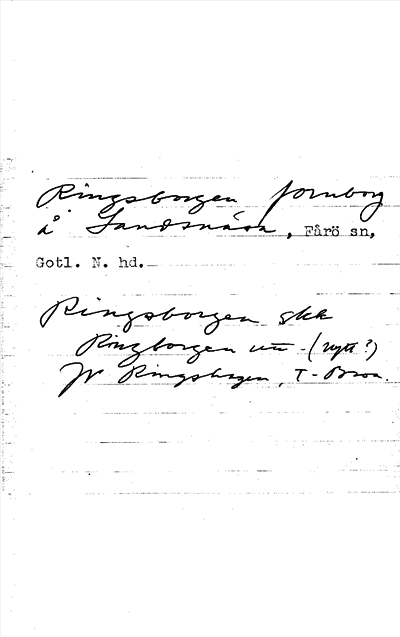 Ringsborgen fornborg
å Sandsnäsa, Fårö sn,
Gotl. N. hd.
Ringsborgen skk
Ringborgen utt - (nytt?)
Jr Ringshagen, T-Broa.